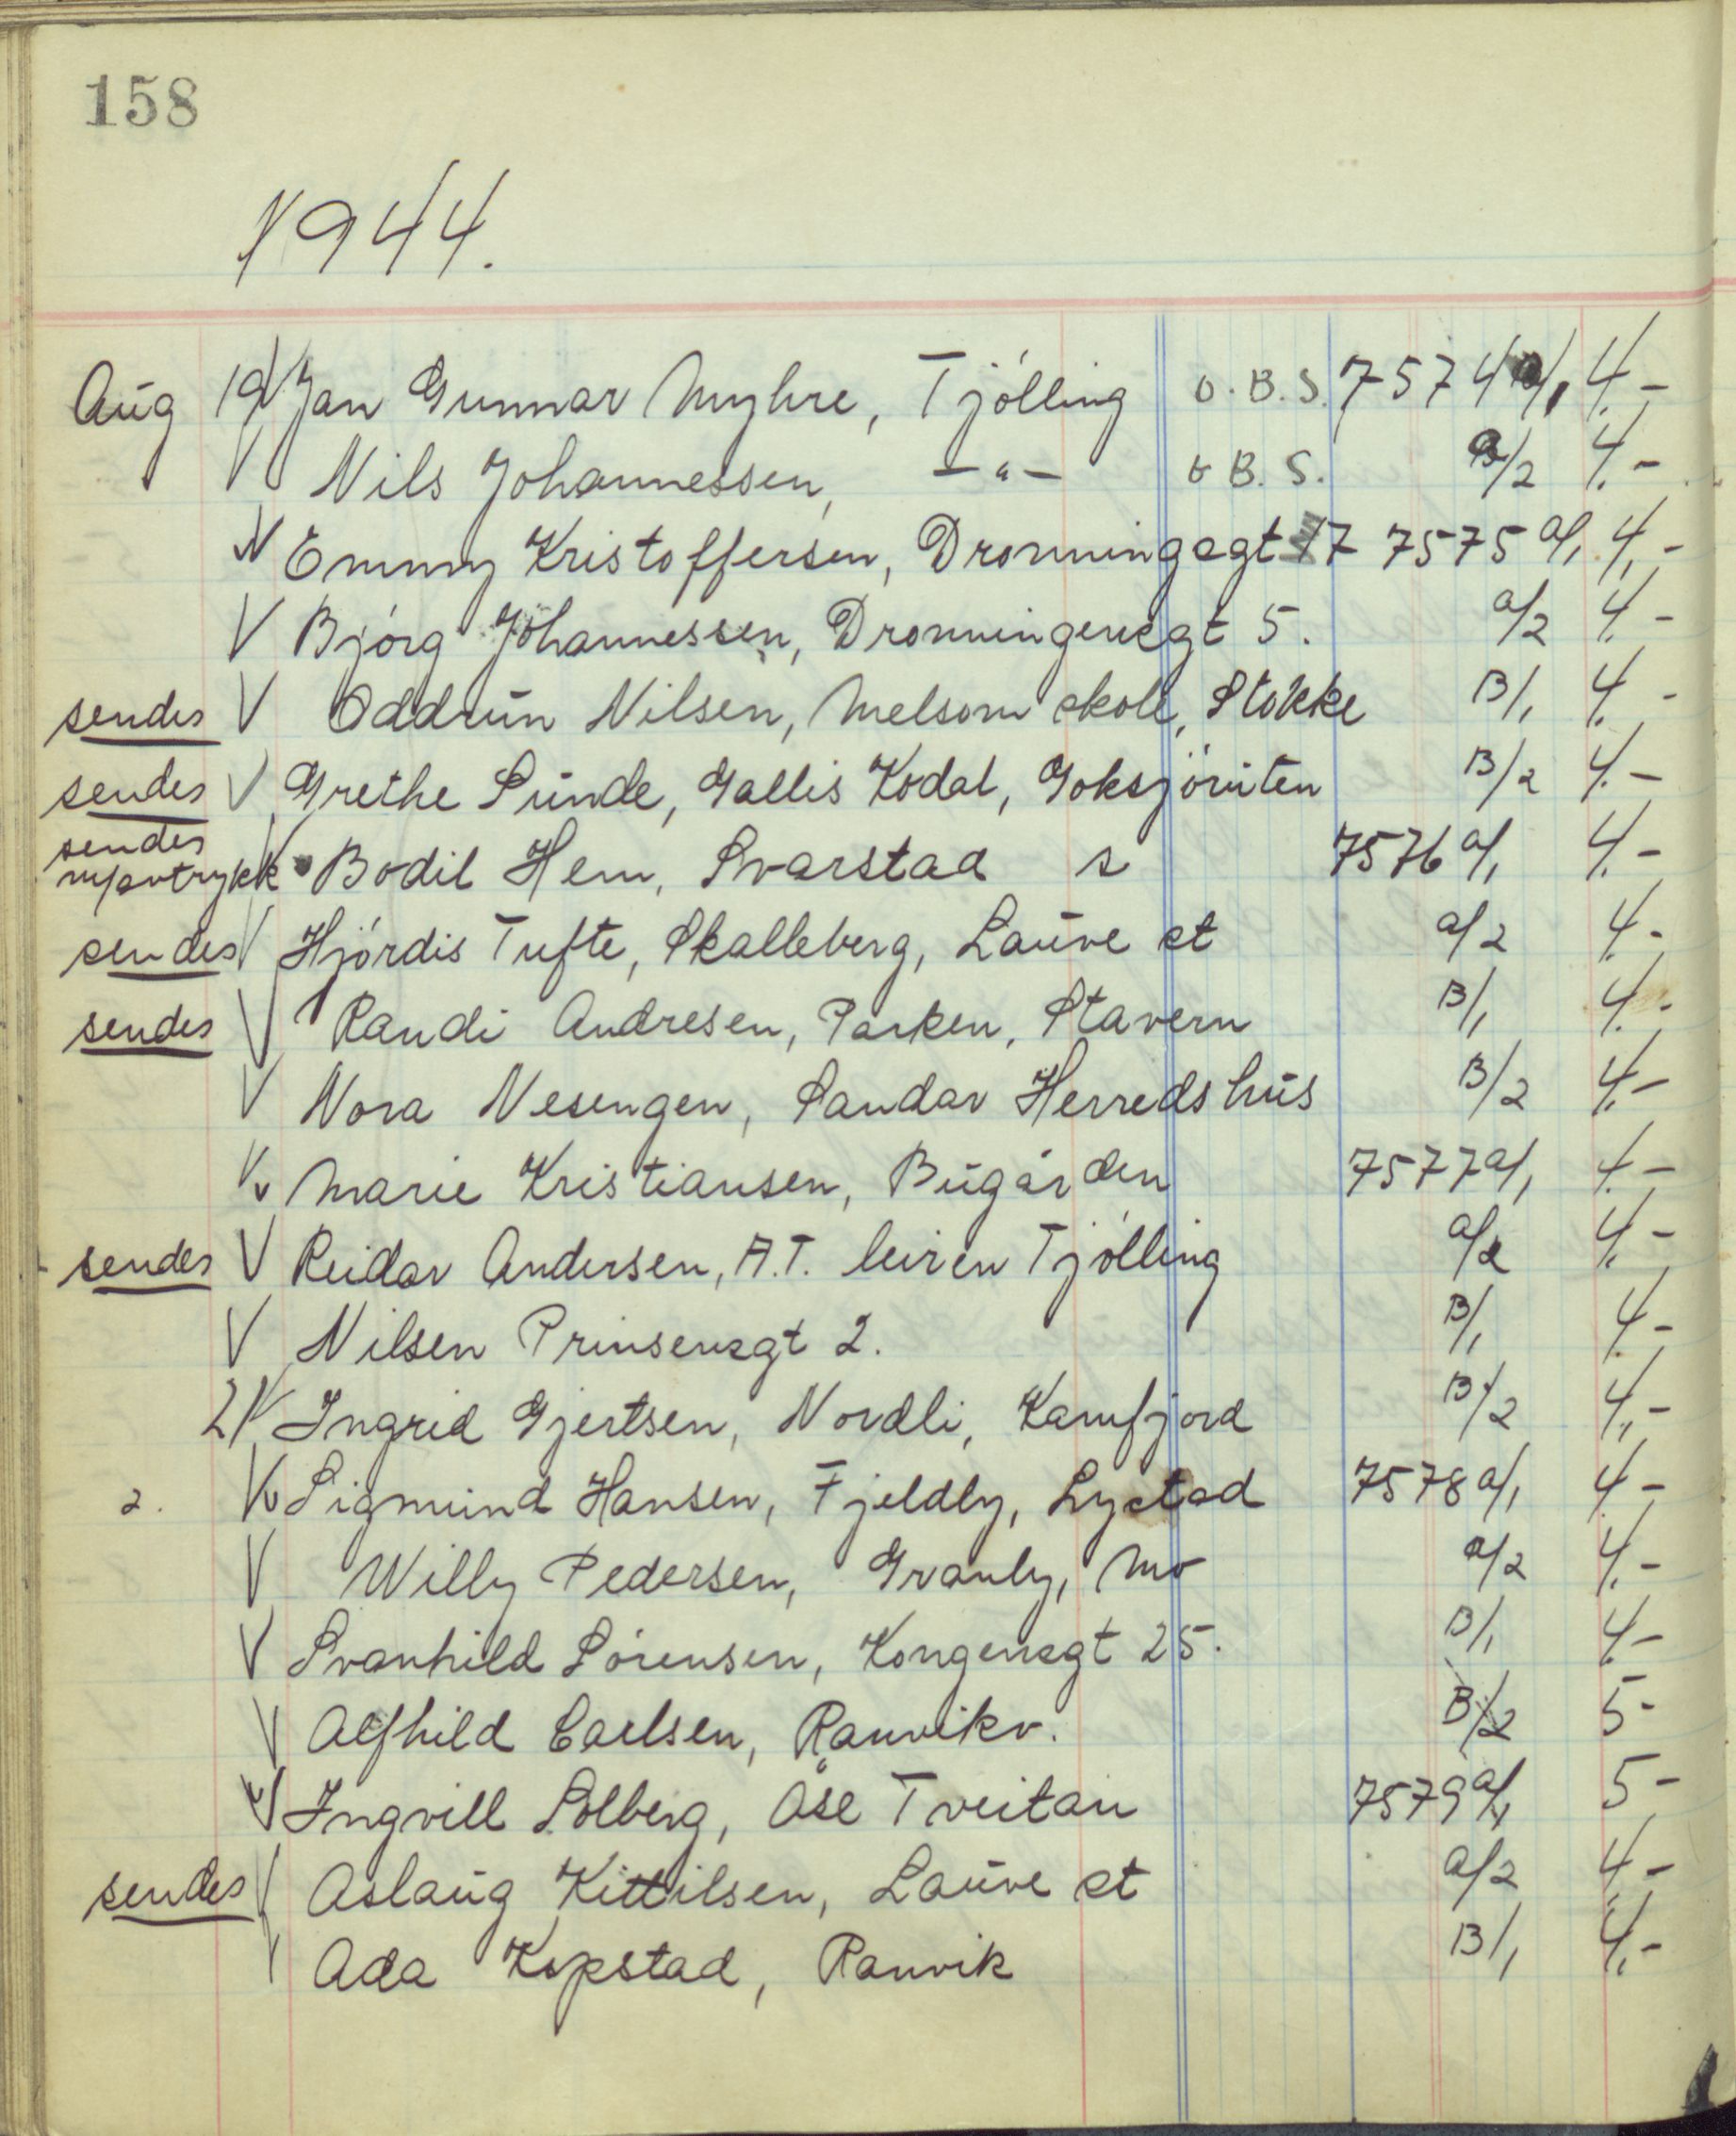 158
1944.
Aug 19 V Jan Gunnar Myhre, Tjölling o.B.S. 7574 a/1 4.-
V Nils Johannessen, -"- o B.S. a/2 4.-
V Emmy Kristoffersen, Dronningsgt 17 7575 a/1 4.-
V Bjørg Johannessen, Dronningensgt 5. a/2 4.-
sendes V Oddrun Nilsen, Melsom skole, Stokke B/1 4.-
sendes V Grethe Sunde, Gallis Kodal, Goksjöruten B/2 4.-
sendes
m/avtrykk V Bodil Hem, Svarstad s 7576 a/1 4.-
sendes V Hjördis Tufte, Skalleberg, Lauve st a/2 4.-
sendes V Randi Andresen, Parken, Stavern B/1 4.-
V Nora Nesengen, Sandar Herredshus B/2 4.-
V Marie Kristiansen, Bugården 7577 a/1 4.-
sendes V Reidar Andersen, A.T. leiren Tjölling a/2 4.-
V Nilsen Prinsensgt 2. B/1 4.-
21 V Ingrid Gjertsen, Nordli, Kamfjord B/2 4.-
2. V Sigmund Hansen, Fjeldly, Lystad 7578 a/1 4.-
V Willy Pedersen, Granly, Mo a/2 4.-
V Svanhild Sörensen, Kongensgt 25. B/1 4.-
V Alfhild Carlsen, Ranvikv. B/2 5-
V Ingvill Solberg, Åse Tveitan 7579 a/1 5-
sendes V Aslaug Kittilsen, Lauve st a/2 4.-
V Ada Kopstad, Ranvik B/1 4.-